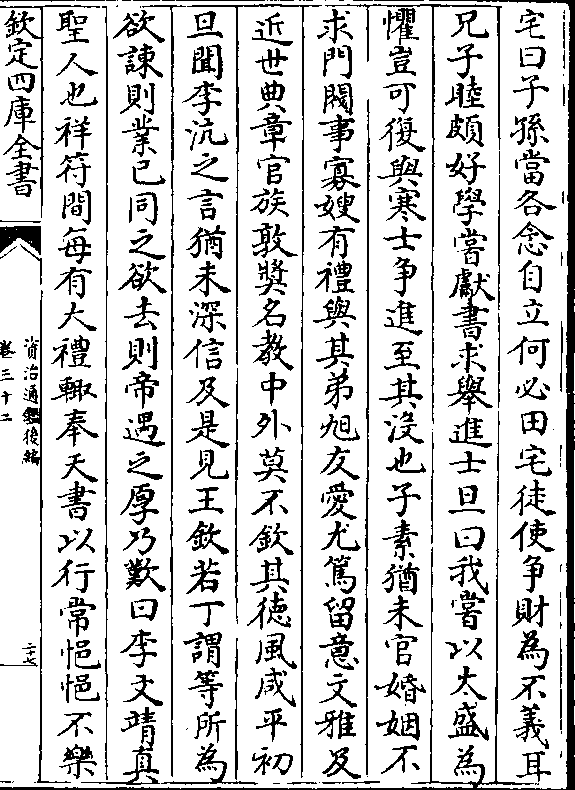 宅曰子孫當各念自立何必田宅徒使争財為不義耳
兄子睦頗好學嘗獻書求舉進士旦曰我嘗以太盛為
懼豈可復與寒士争進至其没也子素猶未官婚姻不
求門閥事寡嫂有禮與其弟旭友愛尤篤留意文雅及
近世典章官族敦奬名教中外莫不欽其徳風咸平初
旦聞李沆之言猶未深信及是見王欽若丁謂等所為
欲諫則業已同之欲去則帝遇之厚乃歎曰李文靖真
聖人也祥符間每有大禮輙奉天書以行常悒悒不樂
欽定四庫全書
資治通鑑後編
卷三十二
二十七